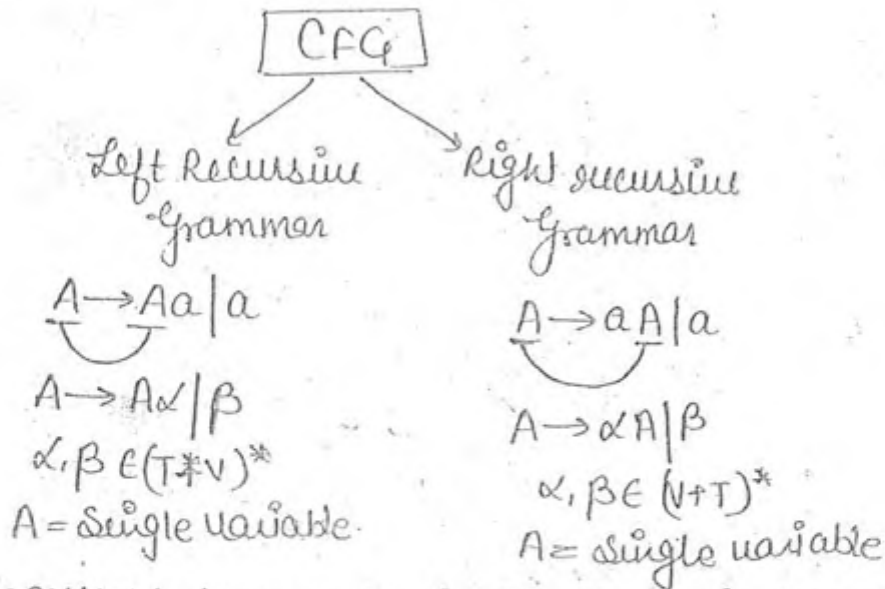 CFG
Left Recursive
Grammar
A→Aa|a
A→Aα|β
α,β ∈(T*V)*
A = Single variable
Right recursive
Grammar
A→aA|a
A→αA|β
α,β∈ (V+T)*
A = Single variable